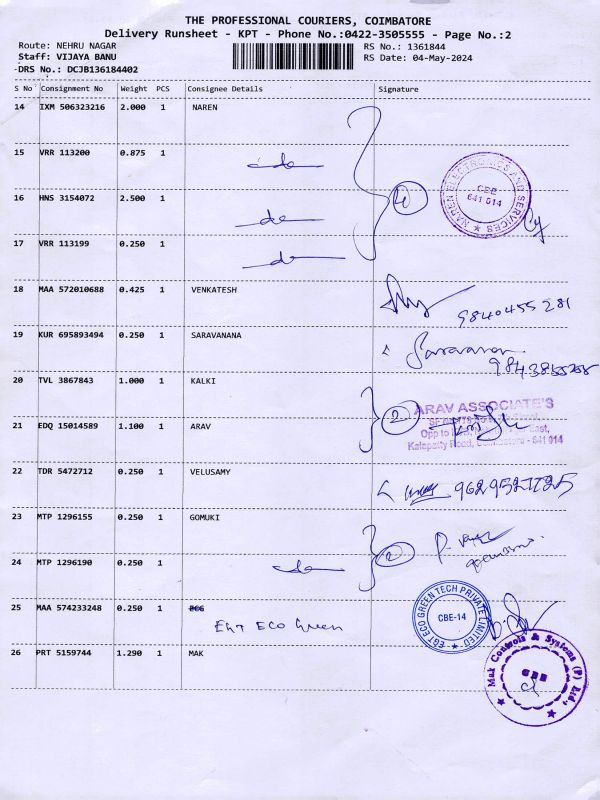 THE PROFESSIONAL COURIERS, COIMBATORE
Delivery Runsheet - KPT - Phone No.:0422-3505555 - Page No.:2
Route: NEHRU NAGAR RS No.: 1361844
Staff: VIJAYA BANU RS Date: 04-May-2024
DRS No.: DCJB136184402
S No Consignment No Weight PCS Consignee Details Signature
14 IXM 506323216 2.000 1 NAREN
15 VRR 113200 0.875 1 do
16 HNS 3154072 2.500 1 do
4
NAREN ELECTRONICS AND SERVICES
CBE
641 014
17 VRR 113199 0.250 1 do
18 MAA 572010688 0.425 1 VENKATESH
9840455281
19 KUR 695893494 0.250 1 SARAVANANA
Saravanan
20 TVL 3867843 1.000 1 KALKI
2
ARAV ASSOCIATE'S
21 EDQ 15014589 1.100 1 ARAV
Kalapatty Road, Coimbatore - 641 014
22 TDR 5472712 0.250 1 VELUSAMY
23 MTP 1296155 0.250 1 GOMUKI
2
24 MTP 1296190 0.250 1 do
25 MAA 574233248 0.250 1
EGT ECO Green
EGT ECO GREEN TECH PRIVATE LIMITED
CBE-14
26 PRT 5159744 1.290 1 MAK
Mak Controls & Systems (P) Ltd.,
CBE